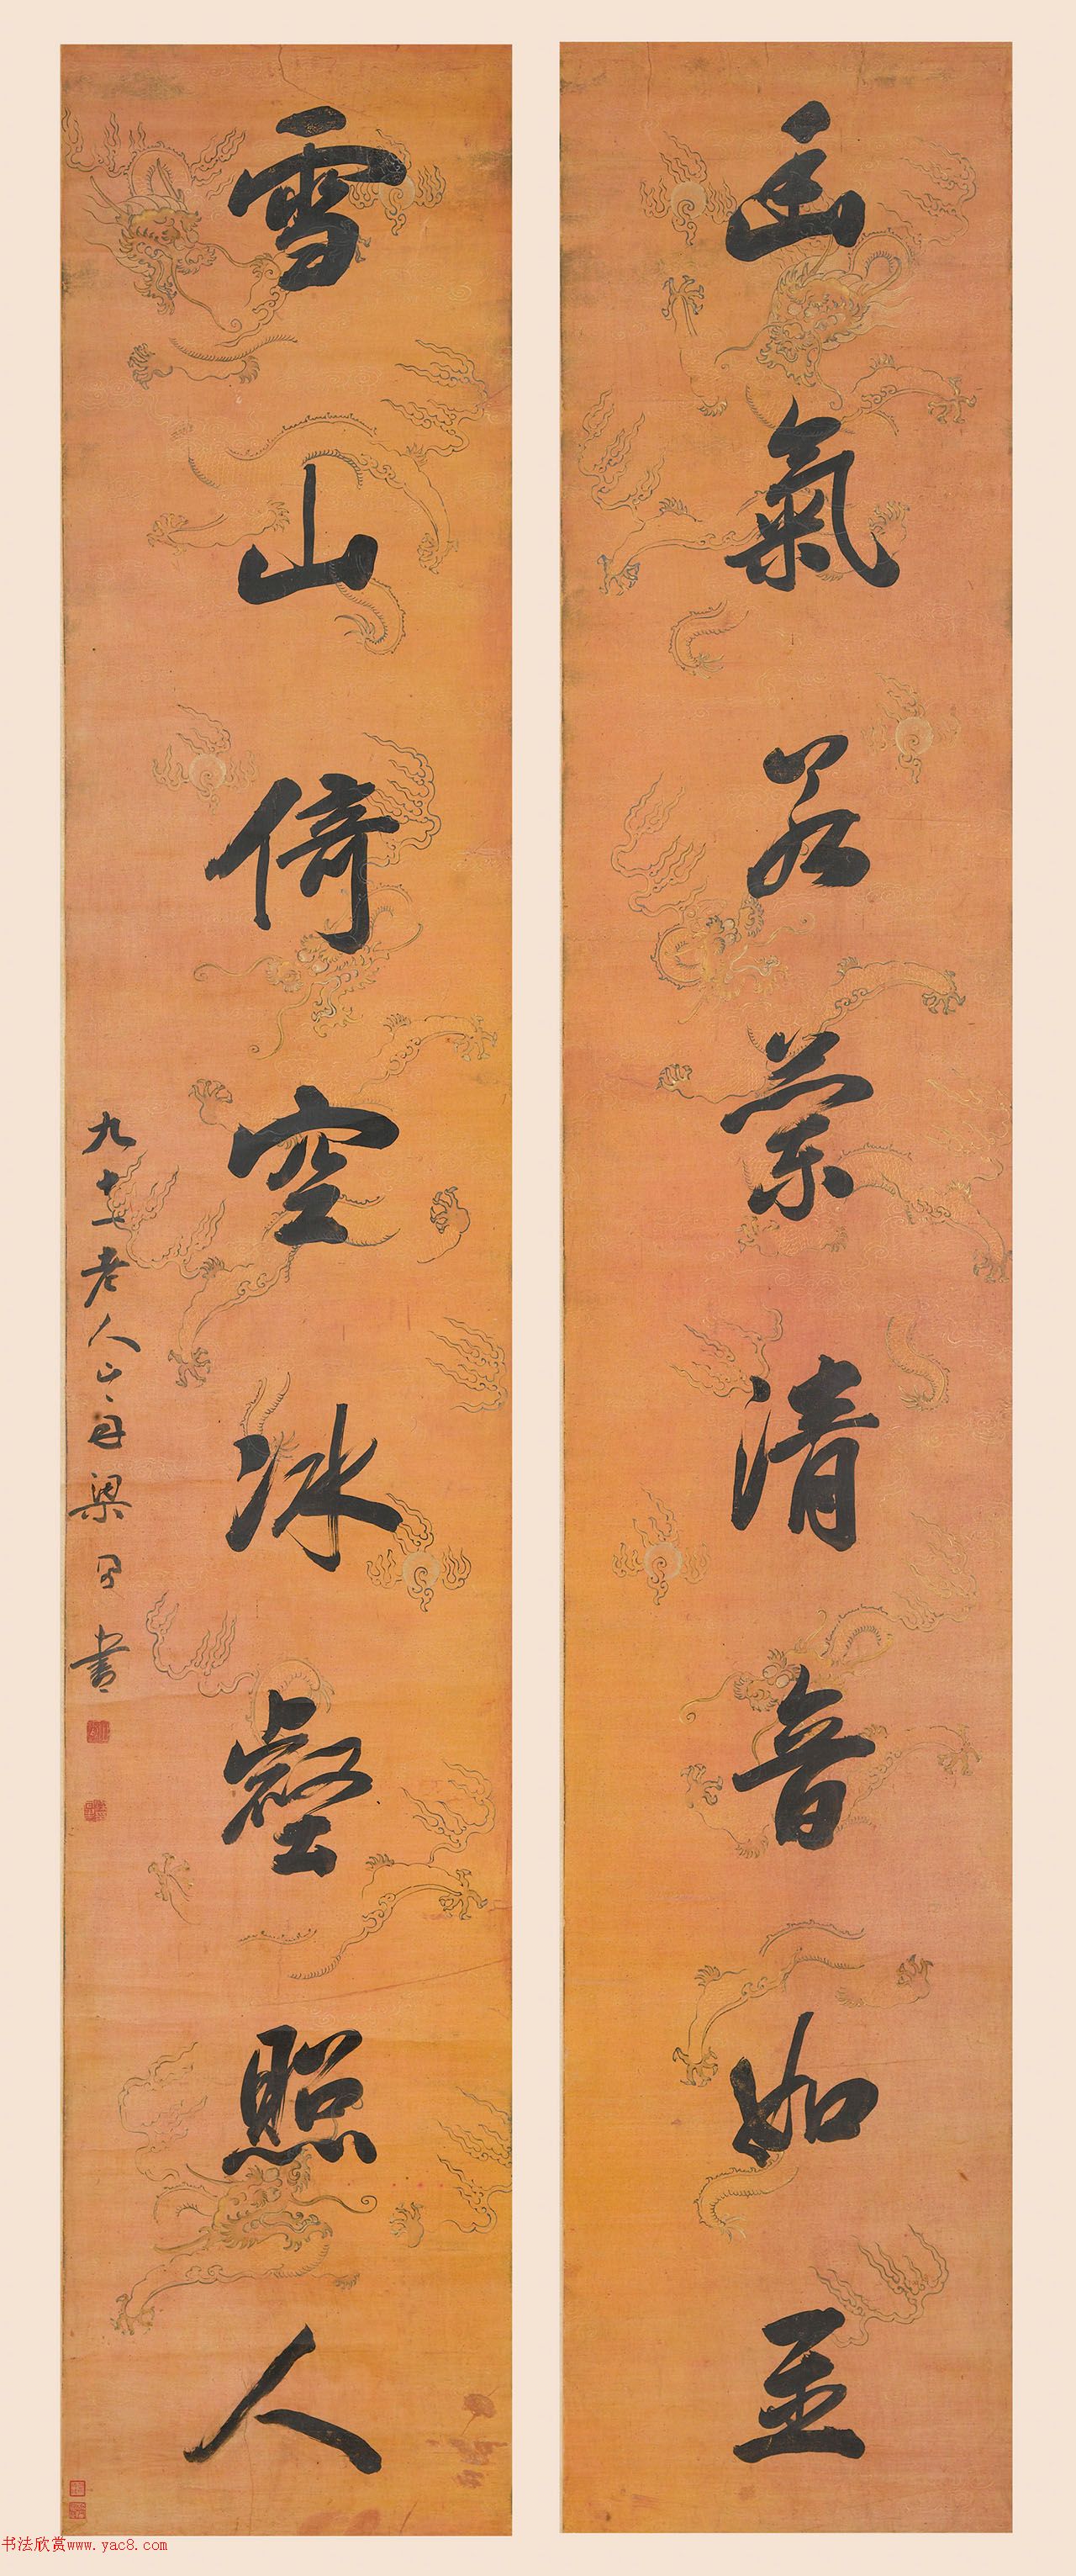 幽氣若蘭清音如至
雪山倚空冰壑照人
九十一老人山舟梁同書
书法欣赏www.yac8.com